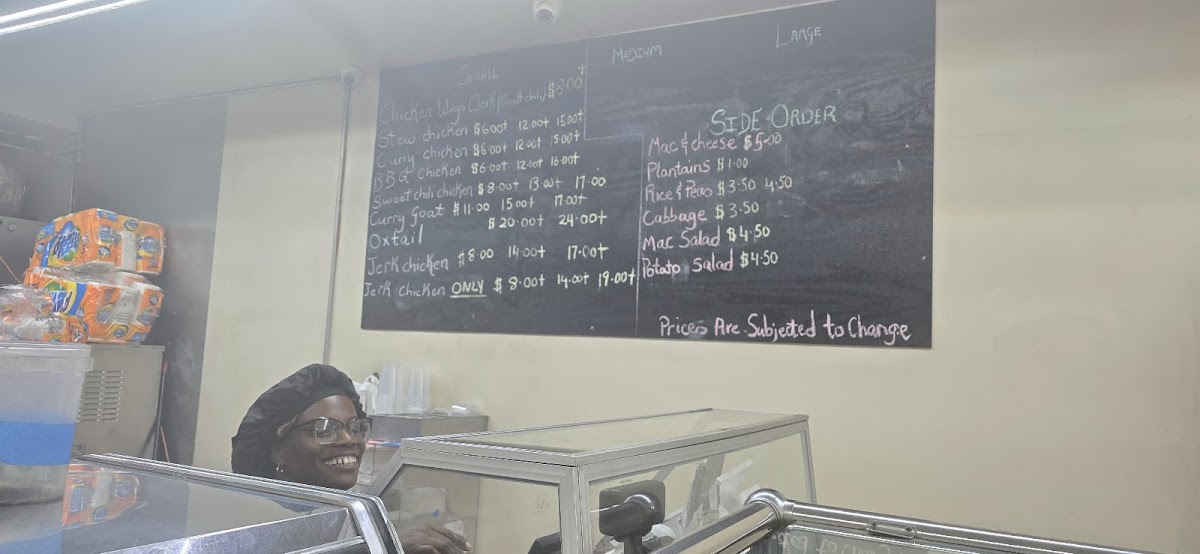 SMALL
MEDIUM
LARGE
Chicken Wings (Jerk/Sweet chili) $8.00+
Stew chicken $6.00+ 12.00+ 15.00+
Curry chicken $6.00+ 12.00+ 15.00+
BBQ chicken $6.00+ 12.00+ 16.00+
Sweet chili chicken $8.00+ 13.00+ 17.00
Curry goat $11.00 15.00+ 17.00+
Oxtail $20.00+ 24.00+
Jerk chicken $8.00 14.00+ 17.00+
Jerk chicken ONLY $8.00+ 14.00+ 19.00+
SIDE ORDER
Mac & cheese $5.00
Plantains $1.00
Rice & Peas $3.50 4.50
Cabbage $3.50
Mac Salad $4.50
Potato Salad $4.50
Prices Are Subjected to Change